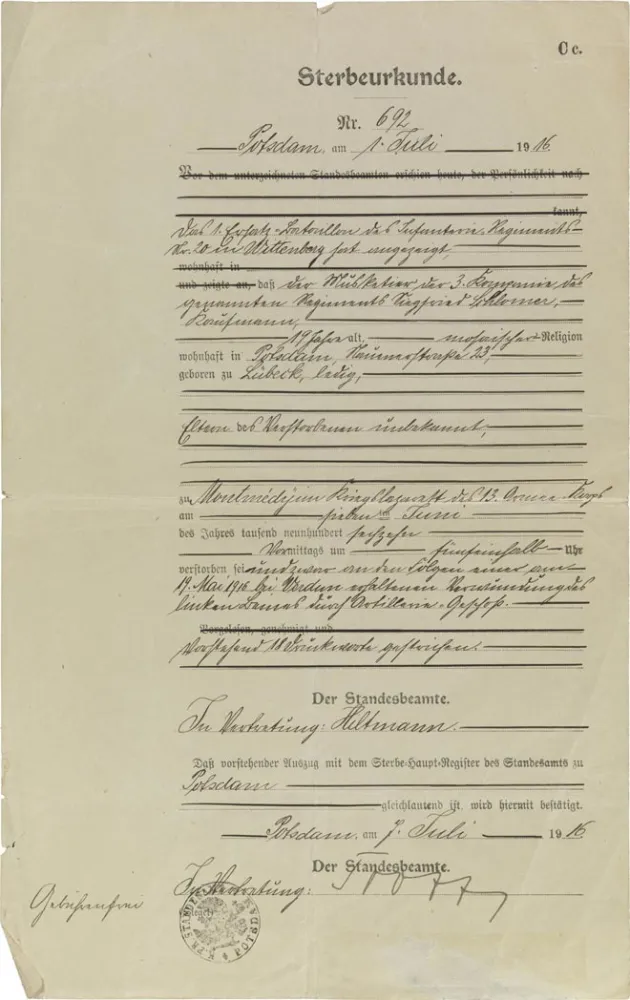 C c.
Sterbeurkunde.
Nr. 692
Potsdam, am 1. Juli 1916
Vor dem unterzeichneten Standesbeamten erschien heute, der Persönlichkeit nach
kannt,
Das 1. Ersatz-Bataillon des Infanterie-Regiments
Nr. 20 in Wittenberg hat angezeigt,
wohnhaft in
und zeigte an, daß der Musketier der 3. Kompanie des
genannten Regiments Siegfried
Kaufmann,
19 Jahre alt, mosaischer Religion
wohnhaft in Potsdam, Nauenerstraße 23,
geboren zu Lübeck, ledig,
Eltern des Verstorbenen unbekannt,
zu Montmédy im Kriegslazarett des 13. Armee-Korps
am sieben ten Juni
des Jahres tausend neunhundert sechzehn
Vormittags um fünfeinhalb Uhr
verstorben sei und zwar an den Folgen einer am
19. Mai 1916 bei Verdun erhaltenen Verwundung des
linken Beines durch Artillerie-Geschoß.
Vorgelesen, genehmigt und
Vorstehend 18 Druckworte gestrichen.
Der Standesbeamte.
In Vertretung: Heltmann.
Daß vorstehender Auszug mit dem Sterbe-Haupt-Register des Standesamts zu
Potsdam
gleichlautend ist, wird hiermit bestätigt.
Potsdam, am 7. Juli 1916
Der Standesbeamte.
In Vertretung:
Gebührenfrei